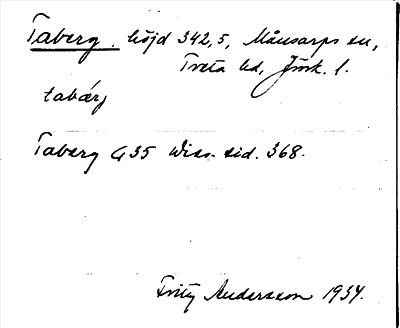 Taberg. höjd 342,5, Månsarps sn,
Tveta hd, Jönk. l.
tabærj
Taberg G35 Wiss. sid. 368.
Fritz Andersson 1934.